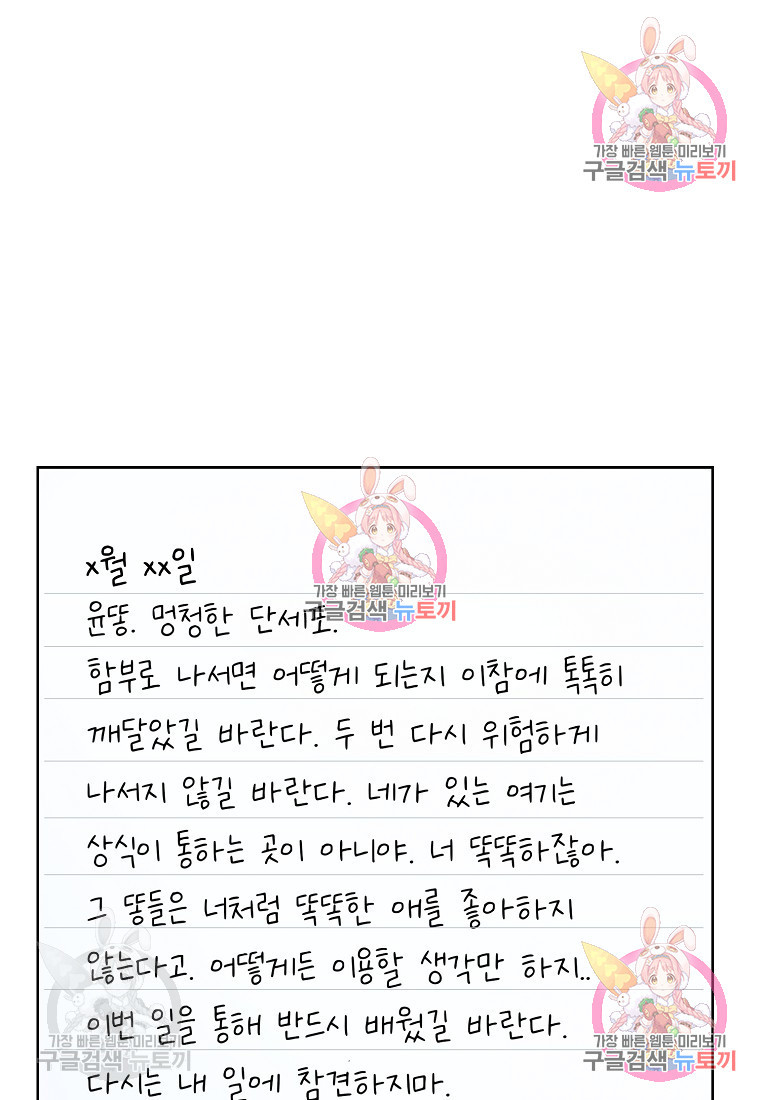 가장 빠른 웹툰 미리보기
구글검색 뉴토끼
x월 xx일
가장 빠른 웹툰 미리보기
구글검색 뉴토끼
윤똥. 멍청한 단세포.
함부로 나서면 어떻게 되는지 이참에 톡톡히
깨달았길 바란다. 두 번 다시 위험하게
나서지 않길 바란다. 네가 있는 여기는
상식이 통하는 곳이 아니야. 너 똑똑하잖아.
그 똥들은 너처럼 똑똑한 애를 좋아하지
않는다고. 어떻게든 이용할 생각만 하지..
이번 일을 통해 반드시 배웠길 바란다.
가장 빠른 웹툰 미리보기
구글검색 뉴토끼
가장 빠른 웹툰 미리보기
구글검색 뉴토끼
다시는 내 일에 참견하지마.